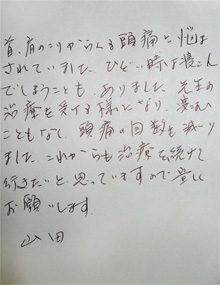 首、肩のこりからくる頭痛に悩ま
されていました。ひどい時は寝こん
でしまうことも、ありました。先生の
治療を受ける様になり、寝こむ
こともなく、頭痛の回数も減り
ました。これからも治療を続けて
行きたいと思っていますので宜しく
お願いします。
山田